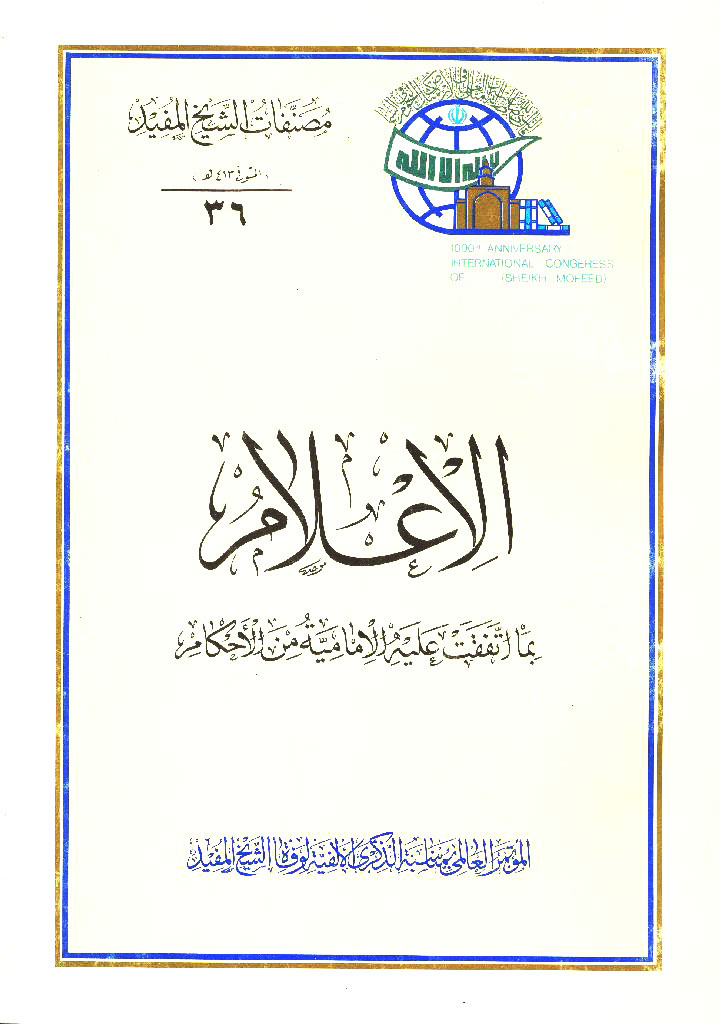 مصنفات الشيخ المفيد
(المتوفى ٤١٣ هـ)
٣٦
لا إله إلا الله
1000th ANNIVERSARY
INTERNATIONAL CONGERESS
OF (SHEIKH MOFEED)
الإعلام
بما اتفقت عليه الإمامية من الأحكام
المؤتمر العالمي بمناسبة الذكرى الألفية لوفاة الشيخ المفيد